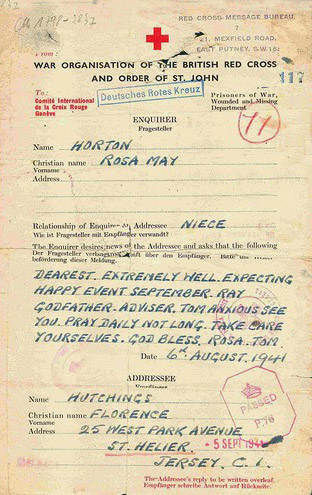 RED CROSS MESSAGE BUREAU,
7
21, MEXFIELD ROAD,
EAST PUTNEY, S.W.15.
From :
WAR ORGANISATION OF THE BRITISH RED CROSS
AND ORDER OF ST. JOHN
117
To:
Comité International
de la Croix Rouge
Genève
Deutsches Rotes Kreuz
Prisoners of War,
Wounded and Missing
Department
ENQUIRER
Fragesteller
Name HORTON
Christian name ROSA MAY
Vorname
Address
Relationship of Enquirer to Addressee NIECE
Wie ist Fragesteller mit Empfänger verwandt?
The Enquirer desires news of the Addressee and asks that the following
beförderung dieser Meldung.
DEAREST. EXTREMELY WELL. EXPECTING
HAPPY EVENT SEPTEMBER. RAY
GODFATHER. ADVISER. TOM ANXIOUS SEE
YOU. PRAY DAILY NOT LONG. TAKE CARE
YOURSELVES. GOD BLESS. ROSA. TOM.
Date 6th AUGUST. 1941
ADDRESSEE
Name HUTCHINGS
Christian name FLORENCE
Vorname
Address 25 WEST PARK AVENUE
ST. HELIER.
JERSEY, C. I.
PASSED
P.76
- 5 SEPT 1941
The Addressee's reply to be written overleaf.
Empfänger schreibe Antwort auf Rückseite.